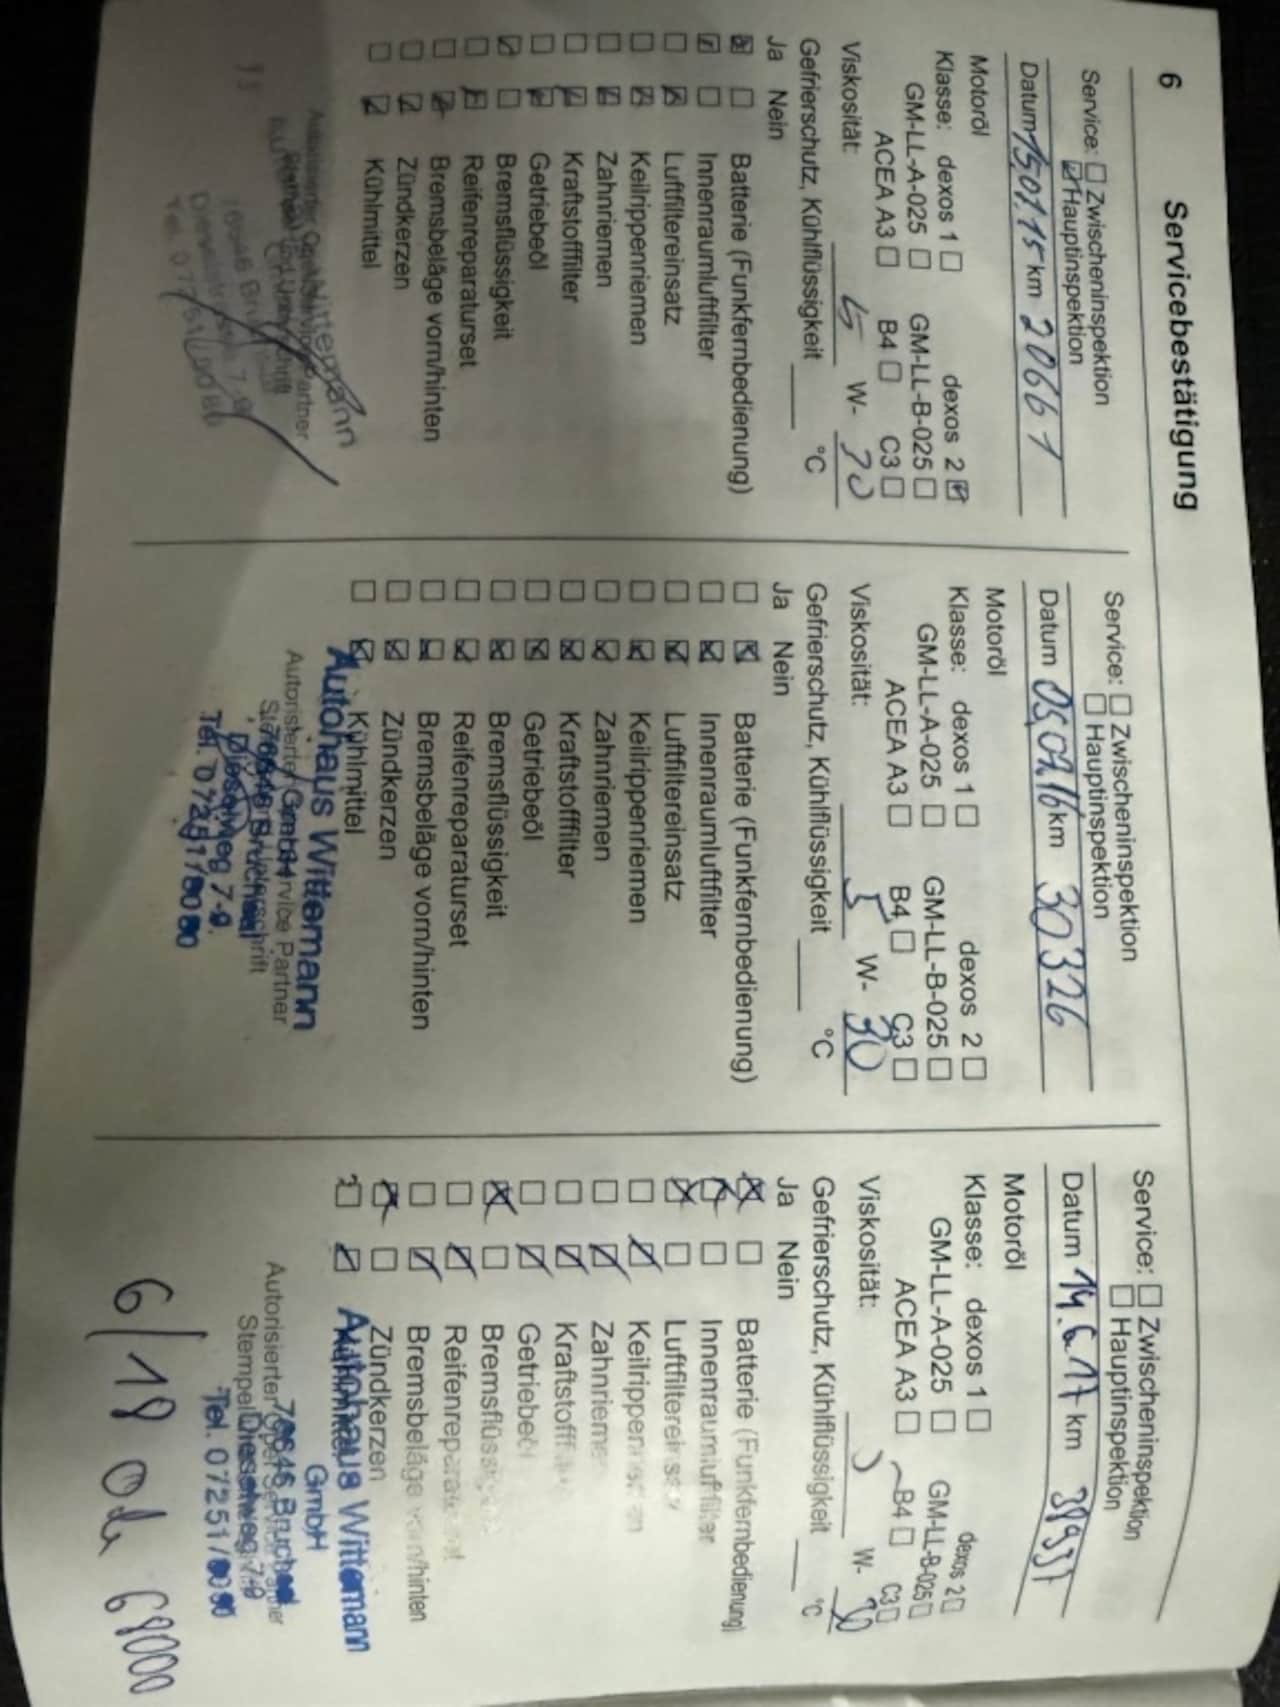 6 Servicebestätigung
Service: Zwischeninspektion
Hauptinspektion
Datum 15.01.15 km 20661
Motoröl
Klasse: dexos 1 dexos 2
GM-LL-A-025 GM-LL-B-025
ACEA A3 B4 C3
Viskosität: 5 W- 30
Gefrierschutz, Kühlflüssigkeit °C
Ja Nein
Batterie (Funkfernbedienung)
Innenraumluftfilter
Luftfiltereinsatz
Keilrippenriemen
Zahnriemen
Kraftstofffilter
Getriebeöl
Bremsflüssigkeit
Reifenreparaturset
Bremsbeläge vorn/hinten
Zündkerzen
Kühlmittel
Service: Zwischeninspektion
Hauptinspektion
Datum km 30326
Motoröl
Klasse: dexos 1 dexos 2
GM-LL-A-025 GM-LL-B-025
ACEA A3 B4 C3
Viskosität: 5 W- 30
Gefrierschutz, Kühlflüssigkeit °C
Ja Nein
Batterie (Funkfernbedienung)
Innenraumluftfilter
Luftfiltereinsatz
Keilrippenriemen
Zahnriemen
Kraftstofffilter
Getriebeöl
Bremsflüssigkeit
Reifenreparaturset
Bremsbeläge vorn/hinten
Zündkerzen
Kühlmittel
Autohaus Wittemann
GmbH
Autorisierter Service Partner
76646 Bruchsal
Dieselweg 7-9
Tel. 07251/8080
Service: Zwischeninspektion
Hauptinspektion
Datum 14.6.17 km
Motoröl
Klasse: dexos 1 dexos 2
GM-LL-A-025 GM-LL-B-025
ACEA A3 B4 C3
Viskosität: W- 30
Gefrierschutz, Kühlflüssigkeit °C
Ja Nein
Batterie (Funkfernbedienung)
Innenraumluftfilter
Luftfiltereinsatz
Keilrippenriemen
Zahnriemen
Kraftstofffilter
Getriebeöl
Bremsflüssigkeit
Reifenreparaturset
Bremsbeläge vorn/hinten
Zündkerzen
Kühlmittel
Autohaus Wittemann
GmbH
Autorisierter Opel Service Partner
76646 Bruchsal
Stempel
Dieselweg 7-9
Tel. 07251/8080
6/18 68000